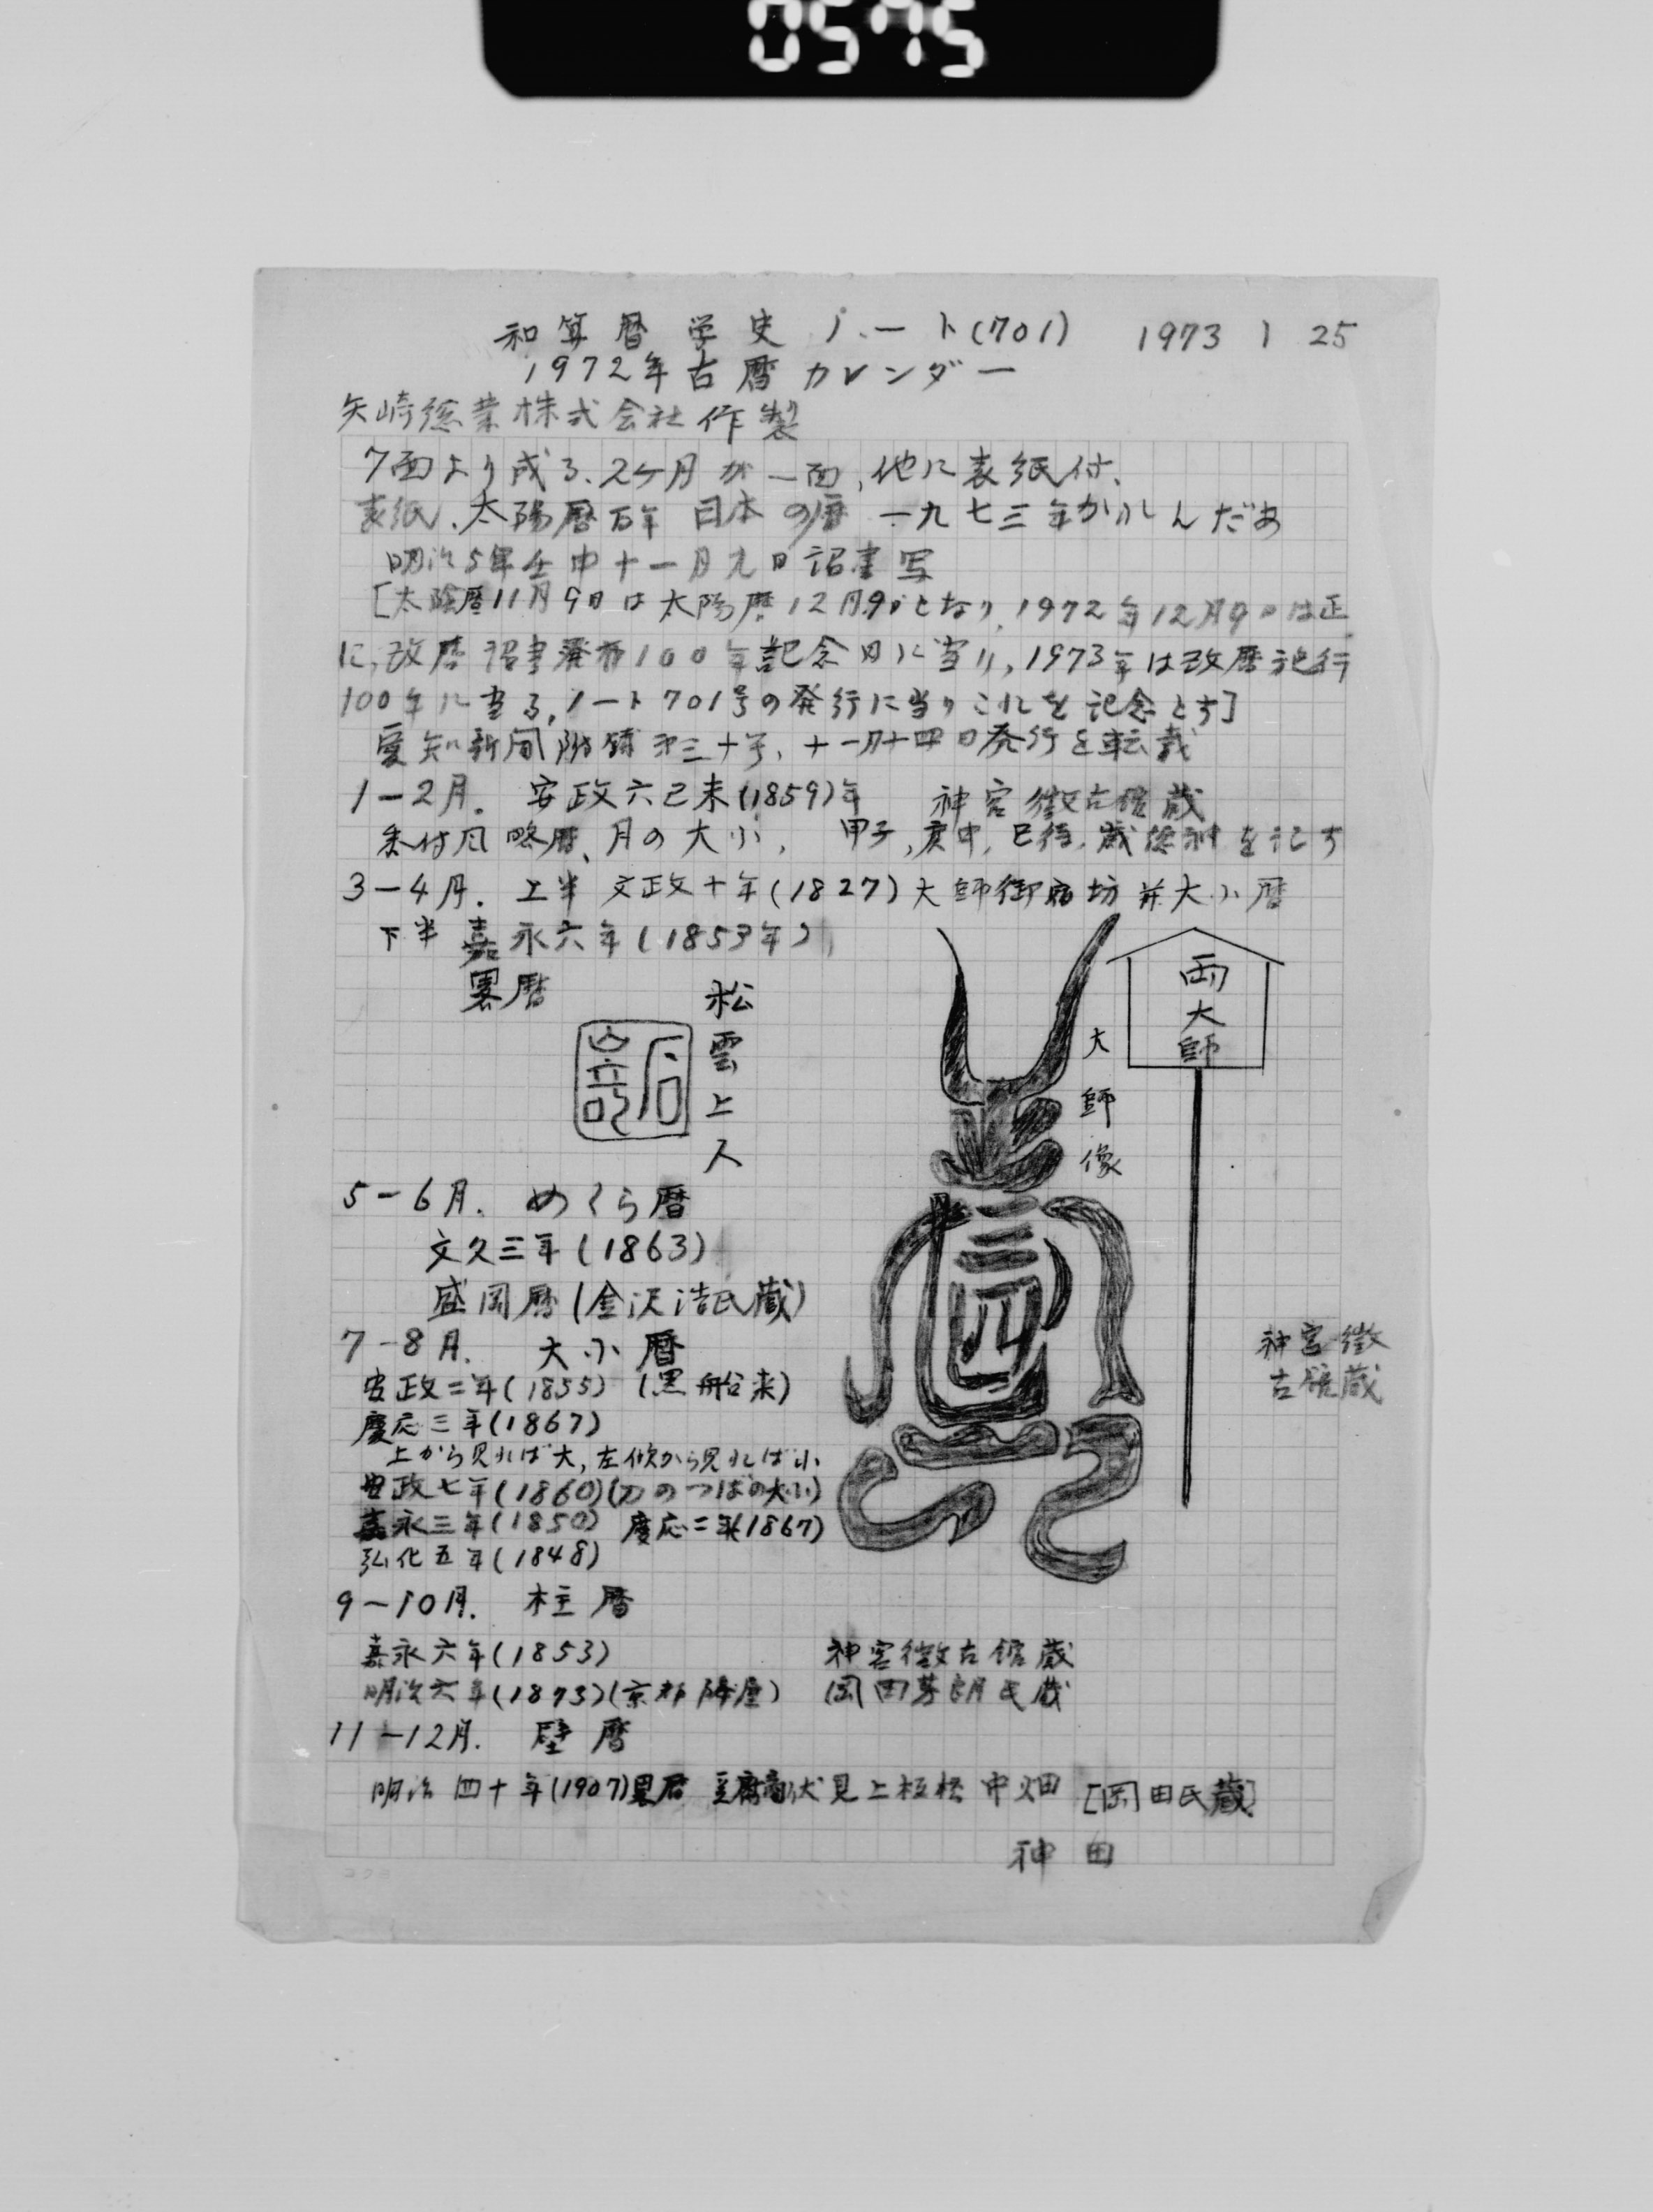 0575
和算暦学史ノート(701) 1973 1 25
1972年古暦カレンダー
矢崎総業株式会社作製
7面より成る、2ケ月が一面、他に表紙付、
表紙、太陽暦百年 日本の暦 一九七三年かれんだあ
明治5年壬申十一月九日詔書写
[太陰暦11月9日は太陽暦12月9日となり、1972年12月9日は正
に、改暦詔書発布100年記念日に当り、1973年は改暦施行
100年に当る、ノート701号の発行に当りこれを記念とす]
愛知新聞附録第三十号、十一月十四日発行を転載
1-2月. 安政六己未(1859)年 神宮徴古館蔵
略暦、月の大小、 甲子, 庚申, 巳待, 歳徳神を記す
3-4月. 上半 文政十年(1827)大師御宿坊并大小暦
下半 嘉永六年(1853年)
暦
松雲上人
大師像
両大師
神宮徴
古館蔵
5-6月. めくら暦
文久三年(1863)
盛岡暦(金沢浩氏蔵)
7-8月. 大小暦
安政二年(1855) (黒船来)
慶応三年(1867)
上から見れば大, 左側から見れば小
安政七年(1860)(刀のつばの大小)
嘉永三年(1850) 慶応二年(1867)
弘化五年(1848)
9-10月. 柱暦
嘉永六年(1853) 神宮徴古館蔵
明治六年(1873)(京都 ) 岡田芳朗氏蔵
11-12月. 壁暦
明治四十年(1907) 豆腐商伏見上板橋中畑 [岡田氏蔵]
神田